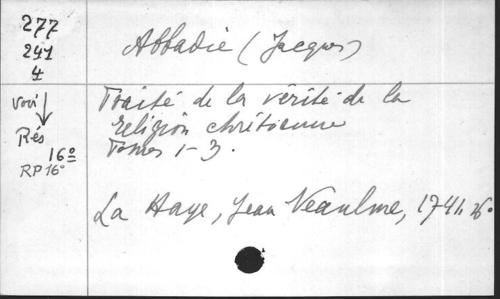 277
241
4
Abbadie (Jacques)
Voir
Rés
16°
RP 16°
Traité de la vérité de la
religion chrétienne
Tomes 1-3.
La Haye, Jean Neaulme, 1741,